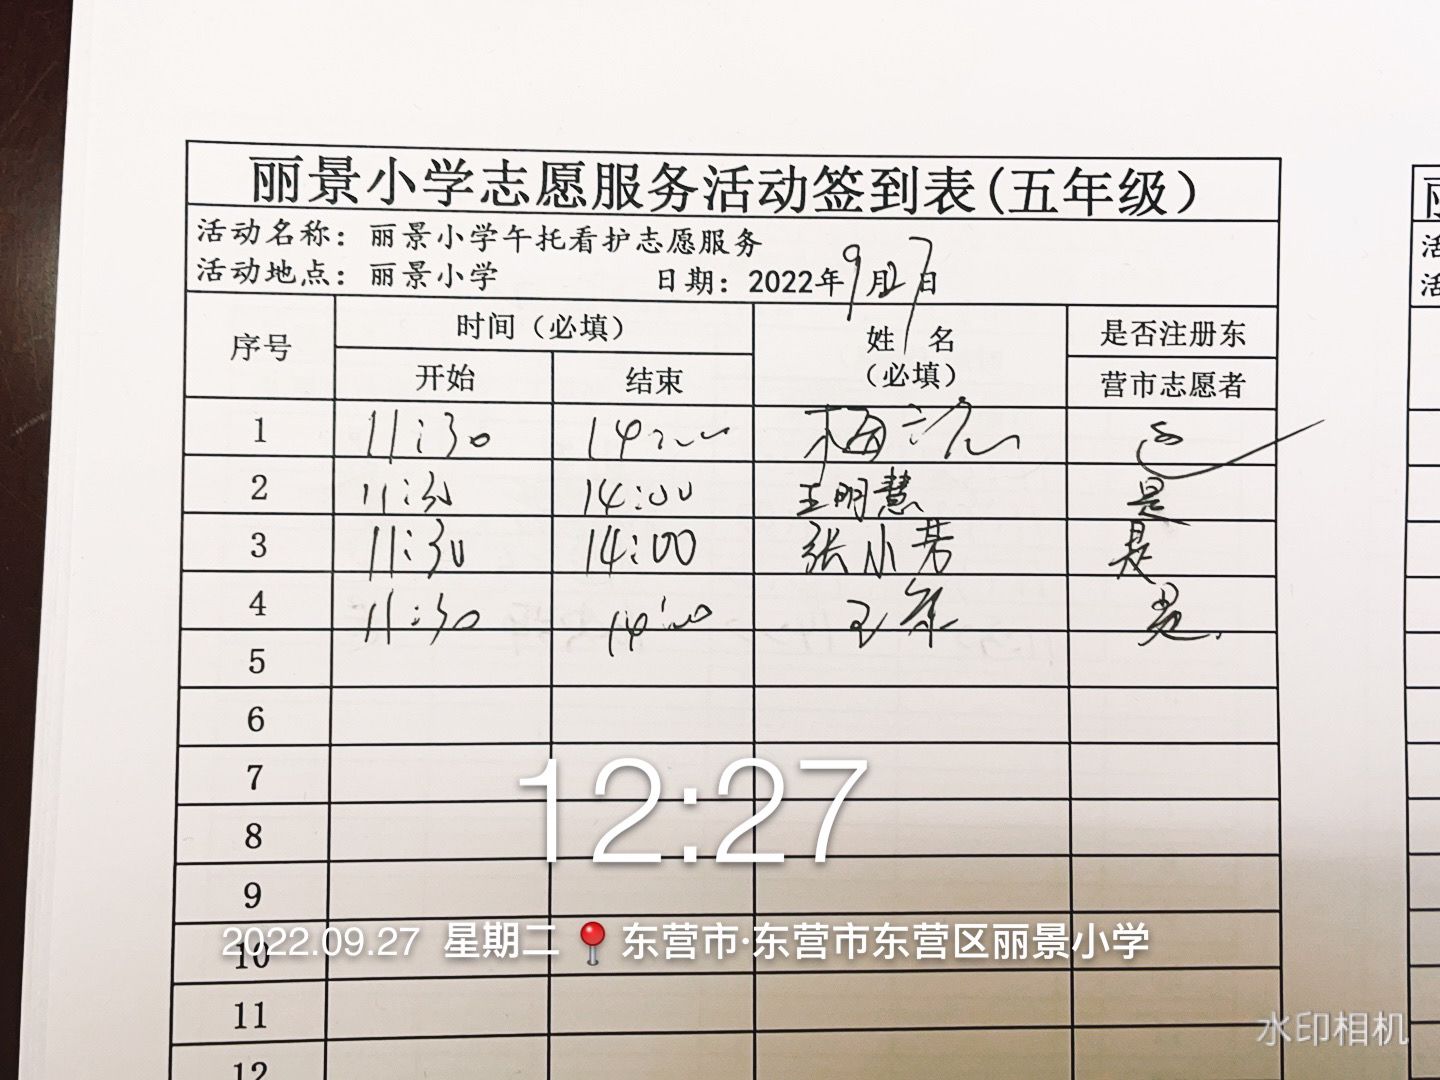 丽景小学志愿服务活动签到表(五年级)
活动名称：丽景小学午托看护志愿服务
活动地点：丽景小学 日期：2022年9月27日
序号 时间（必填） 姓 名 （必填） 是否注册东
开始 结束 营市志愿者
1 11:30 14:00 梅 是
2 11:30 14:00 王明慧 是
3 11:30 14:00 张小芳 是
4 11:30 14:00 王 是
5
6
7
12:27
8
9
2022.09.27 星期二 东营市·东营市东营区丽景小学
10
11
水印相机
12